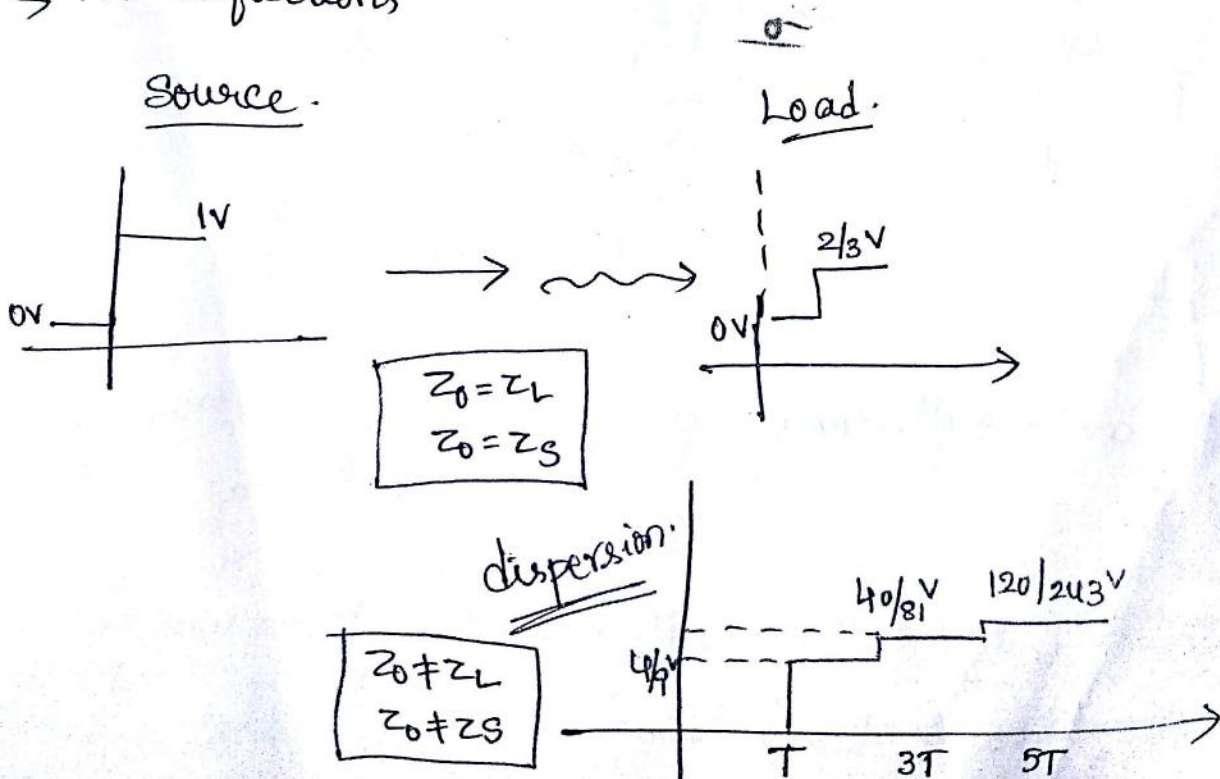 Source.
Load.
1V
0V
2/3 V
0V
Z0 = ZL
Z0 = ZS
dispersion.
Z0 ≠ ZL
Z0 ≠ ZS
4/9 V
40/81 V
120/243 V
T
3T
5T